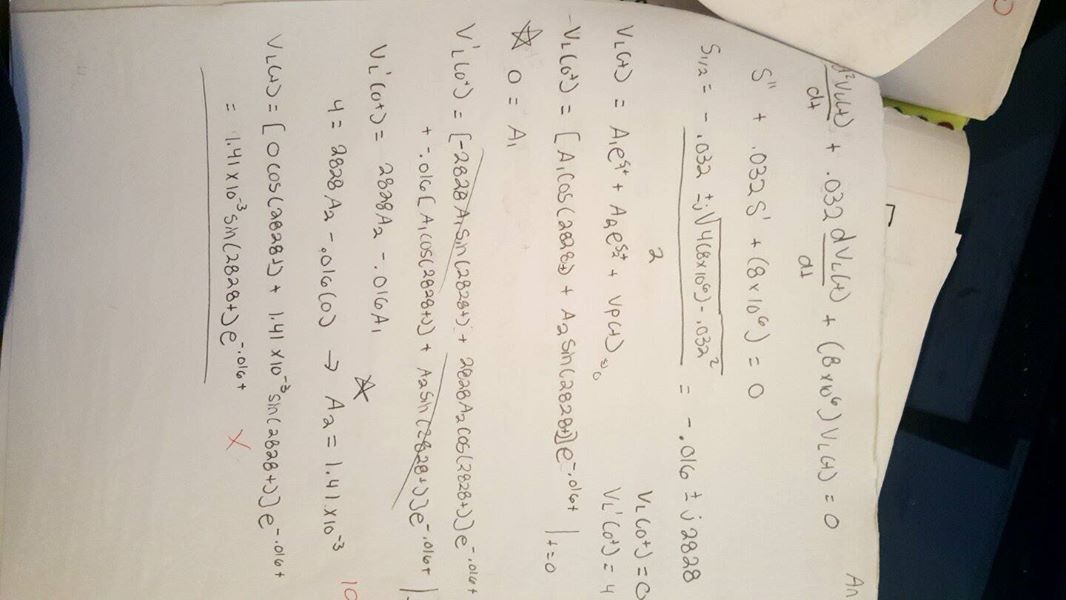 d²VL(t)/dt + .032 dVL(t)/dt + (8x10⁶) VL(t) = 0
S'' + .032S' + (8x10⁶) = 0
S1/2 = -.032 ± j√4(8x10⁶)-.032² / 2 = -.016 ± j2828
VL(t) = A1e^s1t + A2e^s2t + Vp(t)→0
VL(0+) = 0
VL'(0+) = 4
-VL(0+) = [A1cos(2828t) + A2sin(2828t)]e^-.016t |t=0
☆ 0 = A1
VL'(0+) = [-2828A1sin(2828t) + 2828A2cos(2828t)]e^-.016t
+ -.016[A1cos(2828t) + A2sin(2828t)]e^-.016t |
VL'(0+) = 2828A2 - .016A1
4 = 2828A2 - .016(0) → A2 = 1.41x10⁻³ ☆
VL(t) = [0cos(2828t) + 1.41x10⁻³sin(2828t)]e^-.016t
= 1.41x10⁻³sin(2828t)e^-.016t X
An
10